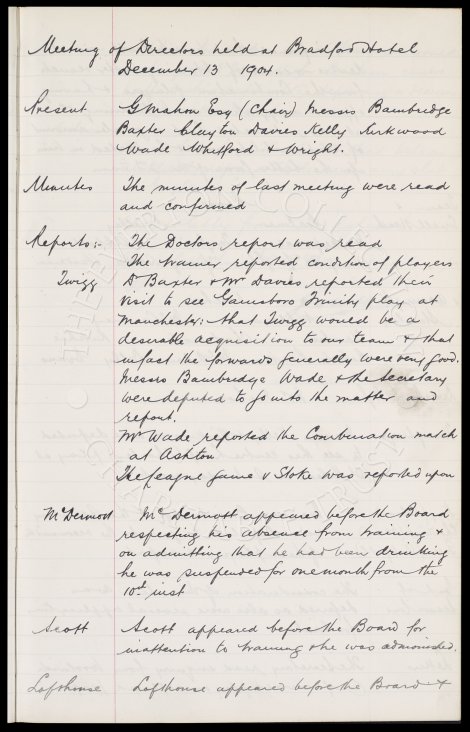 Meeting of Directors held at Bradford Hotel
December 13 1904.
Present G Mahon Esq (Chair) Messrs Bainbridge
Baxter Clayton Davies Kelly Kirkwood
Wade Whitford & Wright.
Minutes The minutes of last meeting were read
and confirmed
Reports:- The Doctors report was read
The trainer reported condition of players
Twigg Dr Baxter & Mr Davies reported their
visit to see Gainsboro Trinity play at
Manchester: that Twigg would be a
desirable acquisition to our team & that
in fact the forwards generally were very good.
Messrs Bainbridge Wade & the Secretary
were deputed to go into the matter and
report.
Mr Wade reported the Combination match
at Ashton
The League game v Stoke was reported upon
McDermott McDermott appeared before the Board
respecting his absence from training &
on admitting that he had been drinking
he was suspended for one month from the
10th inst
Scott Scott appeared before the Board for
inattention to training & he was admonished.
Lofthouse Lofthouse appeared before the Board &